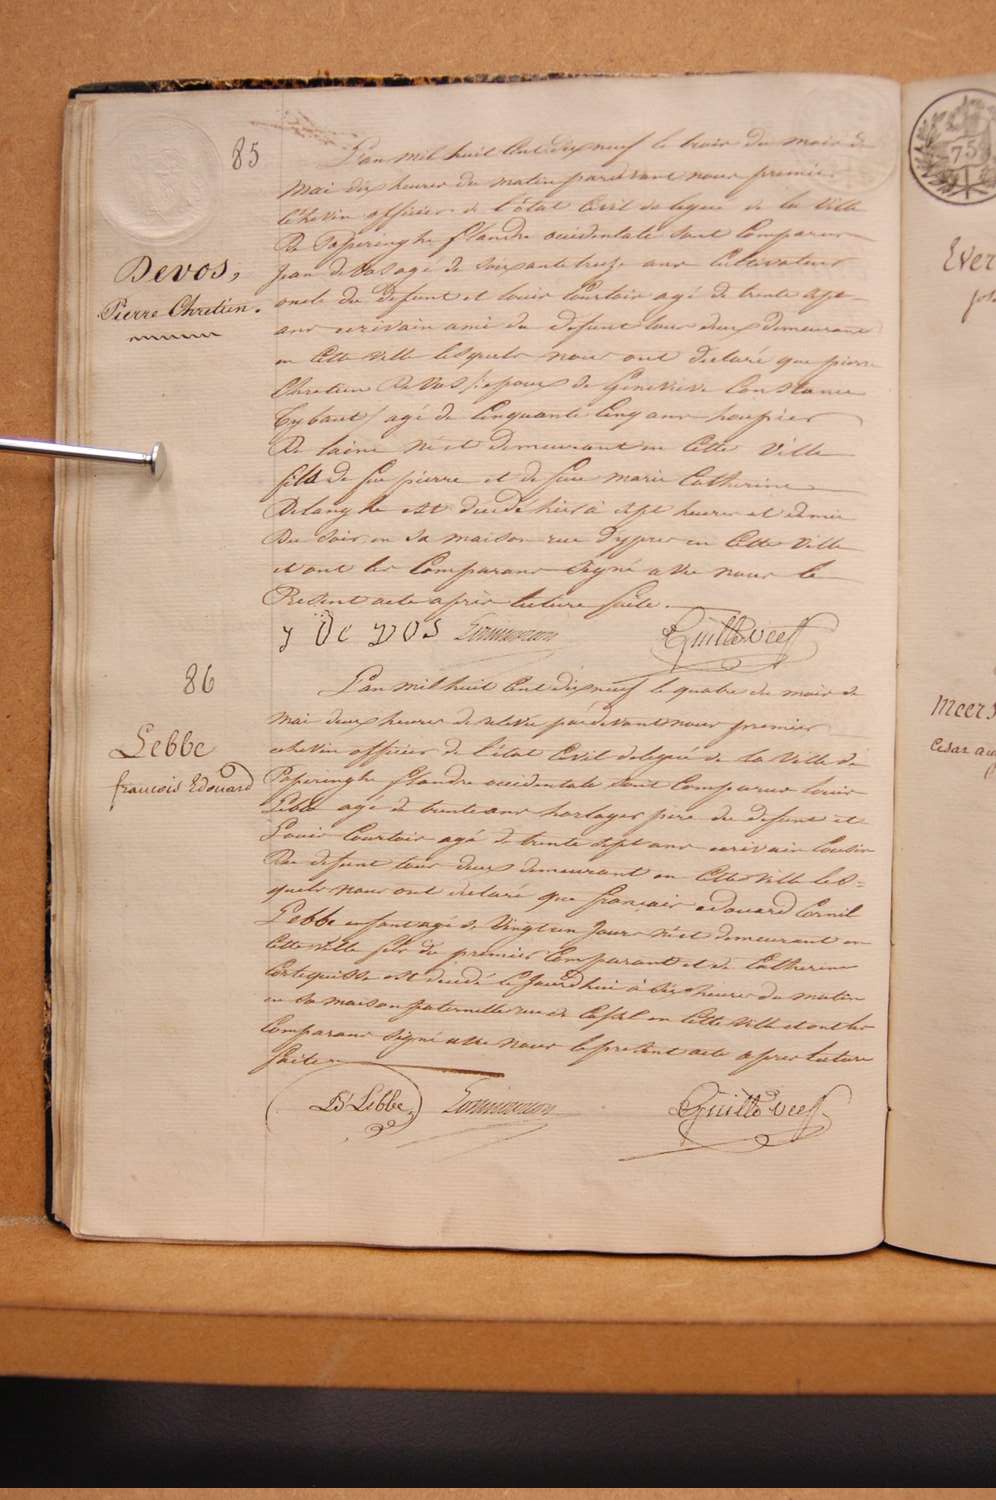 85
Devos,
Pierre Chretien.
L'an mil huit cent dix neuf le trois du mois de
mai dix heures du matin pardevant nous premier
echevin officier de l'état civil delegué de la ville
De Poperinghe flandre occidentale sont comparus
jean de vos agé de soixante treize ans cultivateur
oncle du defunt et louis Courtois agé de trente sept
ans ecrivain ami du defunt tous deux demeurant
en cette ville lesquels nous ont declaré que pierre
Chretien De Vos / epoux de Genevieve Constance
Cybaut / agé de cinquante cinq ans houpier
De laine né et demeurant en cette ville
fils de feu pierre et de feue marie Catherine
Delanghe est decedé hier à sept heures et demie
Du soir en sa maison rue d'ypres en cette ville
et ont les comparans signé avec nous le
Present acte après lecture faite.
J De VOS
86
Lebbe
francois Edouard
L'an mil huit cent dix neuf le quatre du mois de
mai deux heures de relevée pardevant nous premier
echevin officier de l'état civil delegué de la ville de
Poperinghe flandre occidentale sont comparus louis
Lebbe agé de trente ans horloger pere du defunt et
Louis Courtois agé de trente sept ans ecrivain cousin
Du defunt tous deux demeurant en cette ville les=
quels nous ont declaré que françois edouard Cornil
Lebbe enfant agé de vingt un jours né et demeurant en
cette ville fils de premier comparant et de Catherine
est decedé cejourdhui à six heures du matin
en la maison paternelle rue de Cassel en cette ville et ont les
comparans signé avec nous le present acte apres lecture
faite
Ls Lebbe
Ever
75
Meers
Cesar au